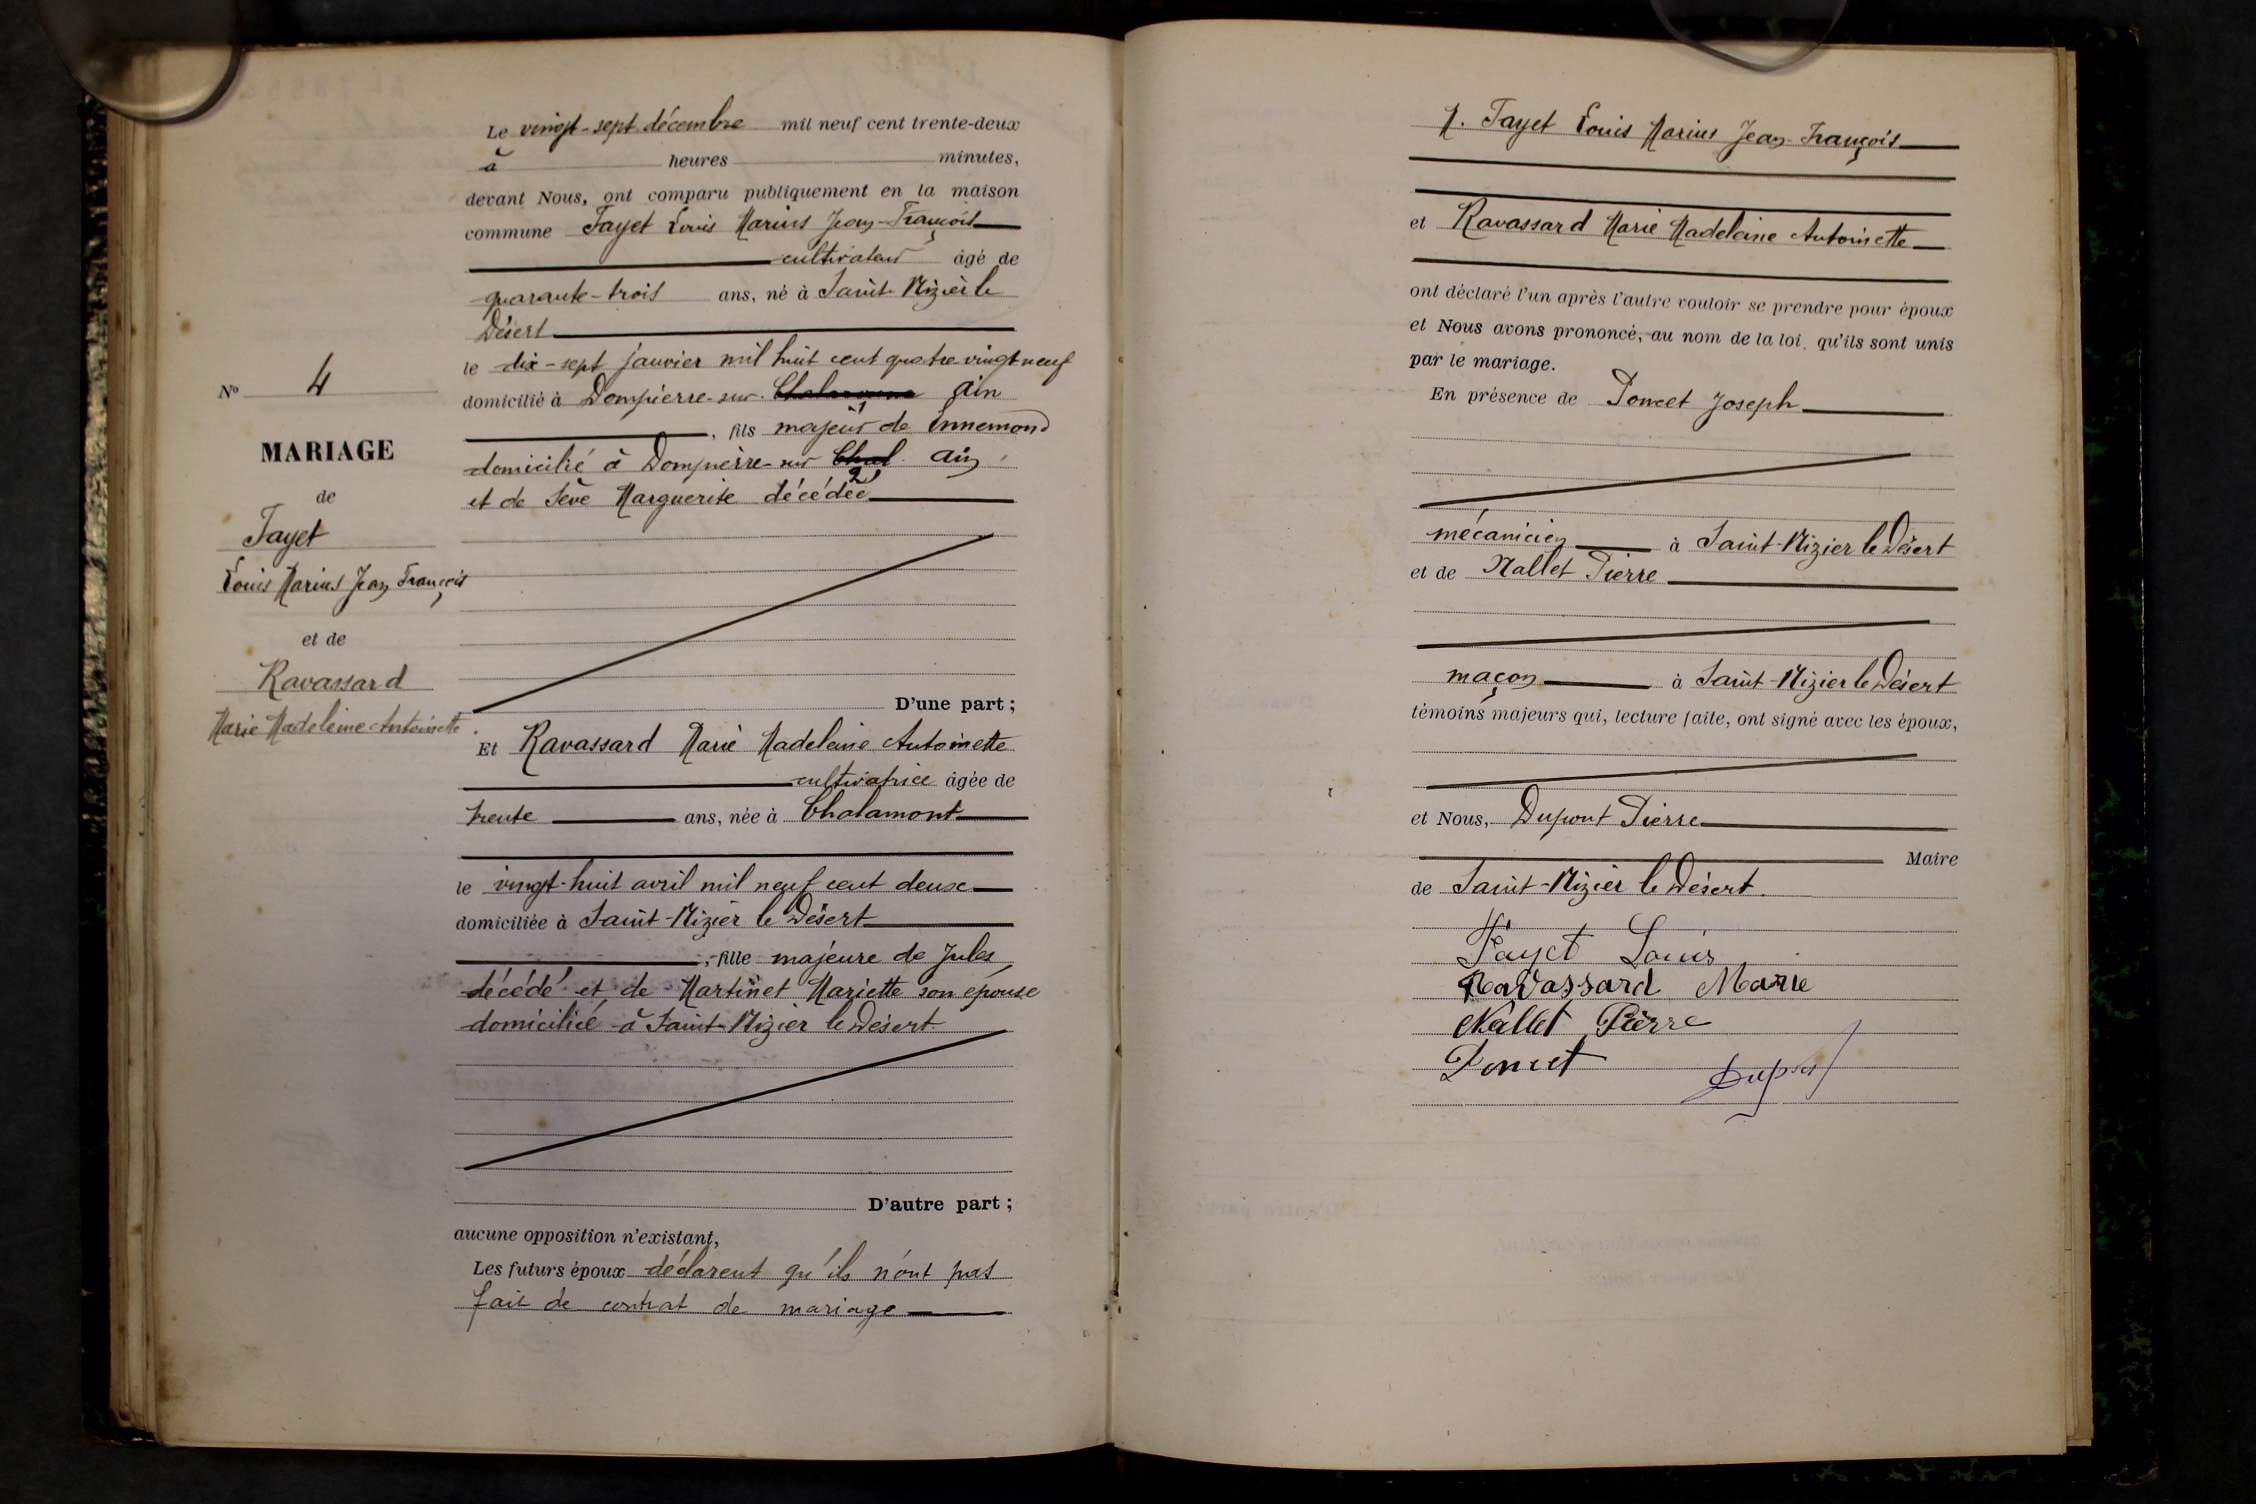 Le vingt-sept décembre mil neuf cent trente-deux
à heures minutes,
devant Nous, ont comparu publiquement en la maison
commune Fayet Louis Marius Jean-François
cultivateur âgé de
quarante-trois ans, né à Saint-Nizier le
Désert
le dix-sept janvier mil huit cent quatre vingt neuf
domicilié à Dompierre-sur-Chalaronne Ain
1
, fils majeur de Ennemond
domicilié à Dompierre-sur Chal. Ain
2
et de Sève Marguerite décédée
D'une part ;
Et Ravassard Marie Madeleine Antoinette
cultivatrice âgée de
trente ans, née à Chalamont
le vingt-huit avril mil neuf cent deux
domiciliée à Saint-Nizier le Désert
, fille majeure de Jules
décédé et de Martinet Mariette son épouse
domiciliée à Saint-Nizier le Désert.
D'autre part ;
aucune opposition n'existant,
Les futurs époux déclarent qu'ils n'ont pas
fait de contrat de mariage
No 4
MARIAGE
de
Fayet
Louis Marius Jean François
et de
Ravassard
Marie Madeleine Antoinette
M. Fayet Louis Marius Jean-François
et Ravassard Marie Madeleine Antoinette
ont déclaré l'un après l'autre vouloir se prendre pour époux
et Nous avons prononcé, au nom de la loi, qu'ils sont unis
par le mariage.
En présence de Poncet Joseph
mécanicien à Saint-Nizier le Désert
et de Nallet Pierre
maçon à Saint-Nizier le Désert
témoins majeurs qui, lecture faite, ont signé avec les époux,
et Nous, Dupont Pierre
Maire
de Saint-Nizier le Désert.
Fayet Louis
Ravassard Marie
Nallet Pierre
Poncet
Dupont